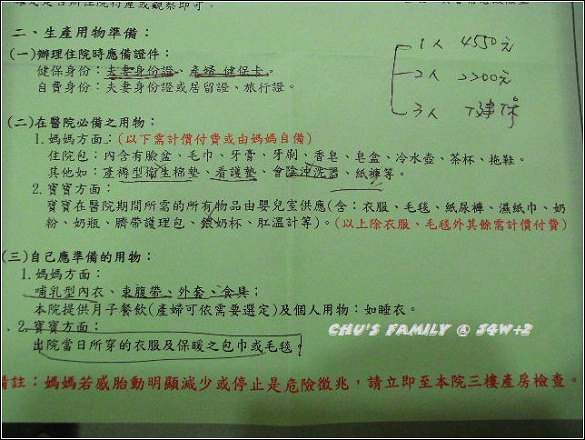 二、生產用物準備：
(一)辦理住院時應備證件：
健保身份：夫妻身份證、產婦健保卡。
自費身份：夫妻身份證或居留證、旅行證。
1人 4550元
2人 2200元
3人 健保
(二)在醫院必備之用物：
1.媽媽方面：(以下需計價付費或由媽媽自備)
住院包：內含有臉盆、毛巾、牙膏、牙刷、香皂、皂盒、冷水壺、茶杯、拖鞋。
其他如：產褥型衛生棉墊、看護墊、會陰沖洗器、紙褲等。
2.寶寶方面：
寶寶在醫院期間所需的所有物品由嬰兒室供應(含：衣服、毛毯、紙尿褲、濕紙巾、奶
粉、奶瓶、臍帶護理包、餵奶杯、肛溫計等)。(以上除衣服、毛毯外其餘需計價付費)
(三)自己應準備的用物：
1.媽媽方面：
哺乳型內衣、束腹帶、外套、食具；
本院提供月子餐飲(產婦可依需要選定)及個人用物：如睡衣。
2.寶寶方面：
出院當日所穿的衣服及保暖之包巾或毛毯。
CHU'S FAMILY @ J4W+2
備註：媽媽若感胎動明顯減少或停止是危險徵兆，請立即至本院三樓產房檢查。